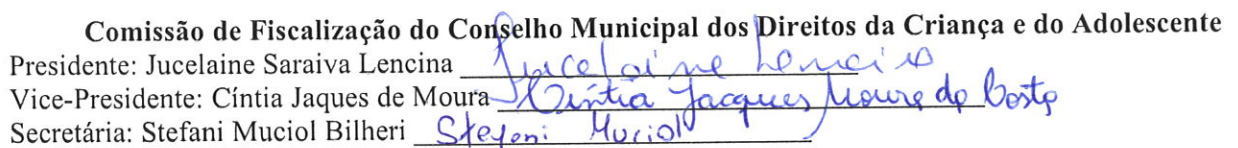 Comissão de Fiscalização do Conselho Municipal dos Direitos da Criança e do Adolescente
Presidente: Jucelaine Saraiva Lencina Jucelaine Lencina
Vice-Presidente: Cíntia Jaques de Moura Cíntia Jacques Moura da Costa
Secretária: Stefani Muciol Bilheri Stefani Muciol